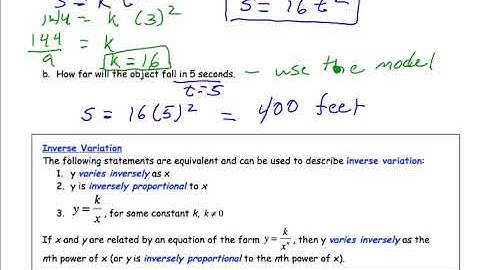 s = k t²
144 = k (3)²
s = 16 t²
144/9 = k
k = 16
b. How far will the object fall in 5 seconds. – use the model
t = 5
s = 16(5)² = 400 feet
Inverse Variation
The following statements are equivalent and can be used to describe inverse variation:
1. y varies inversely as x
2. y is inversely proportional to x
3. y = k/x, for some constant k, k ≠ 0
If x and y are related by an equation of the form y = k/xⁿ, then y varies inversely as the
nth power of x (or y is inversely proportional to the nth power of x).